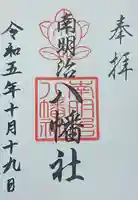 奉拝
南明治八幡社
令和五年十月十九日